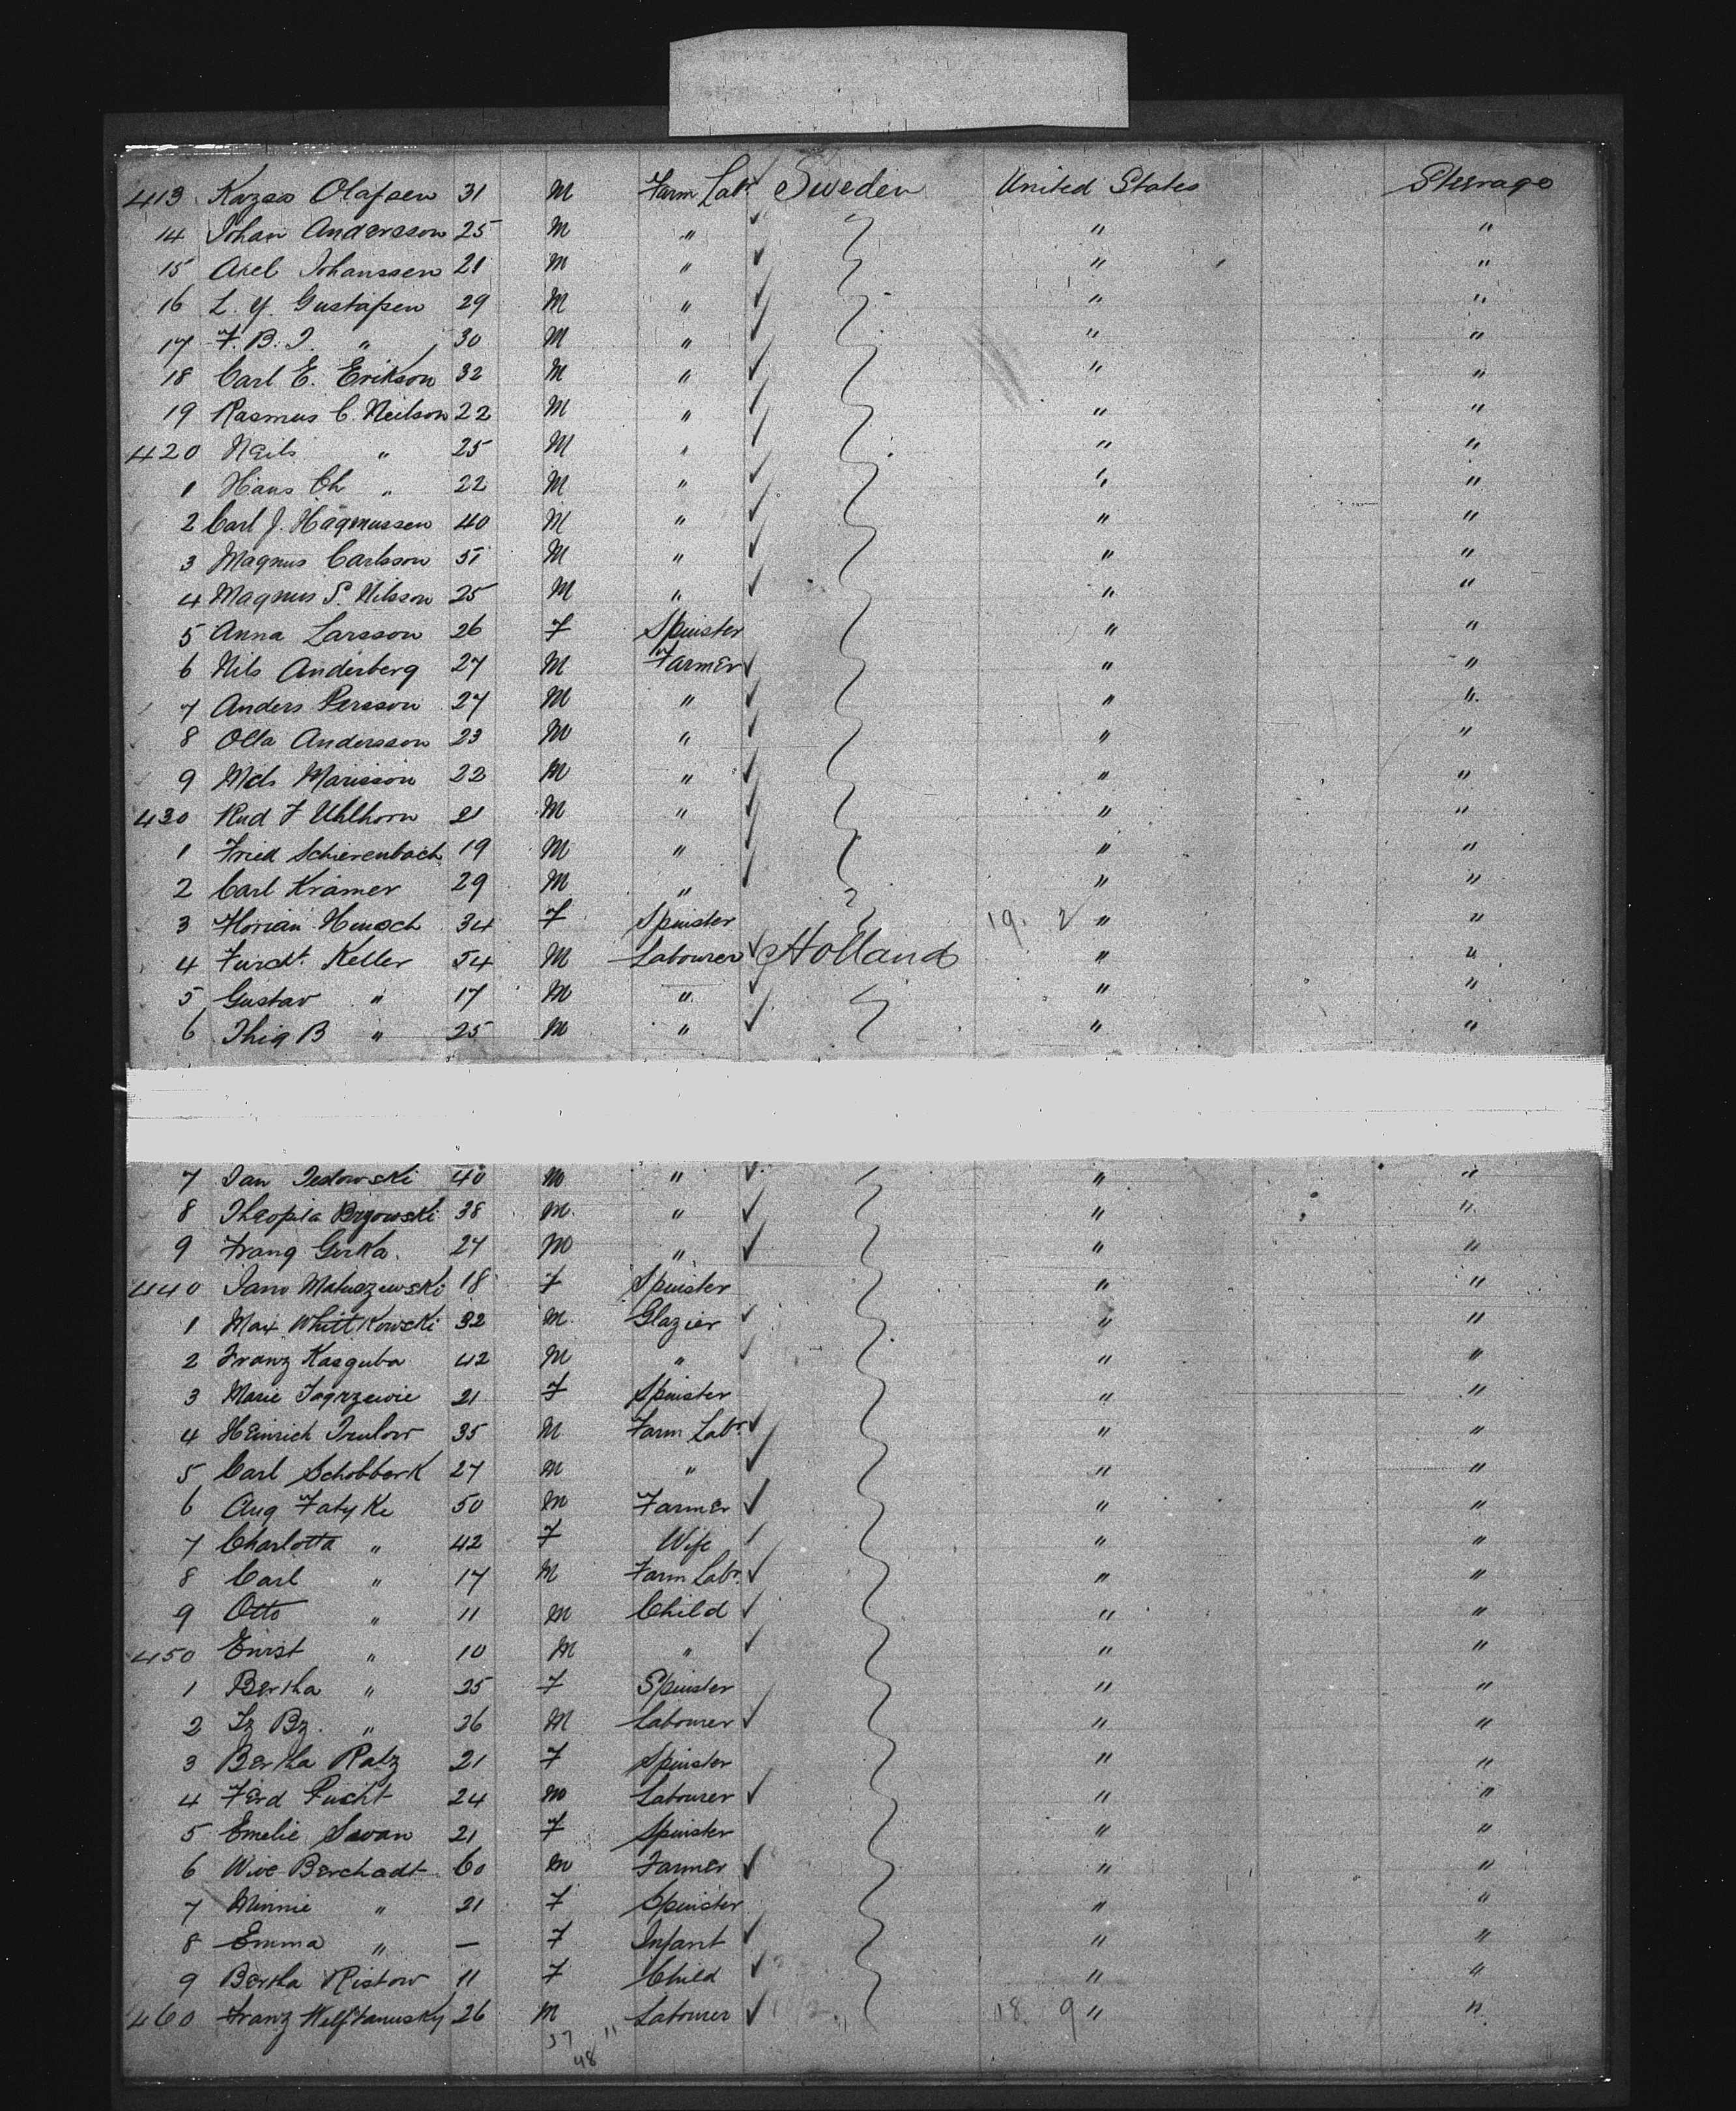 413 Kazsa Olafsen 31 M Farm Labr. Sweden United States Steerage
14 Johan Andersson 25 M " " "
15 Axel Johanssen 21 M " " "
16 L. Y. Gustafsen 29 M " " "
17 F. B. I. " 30 M " " "
18 Carl E. Erikson 32 M " " "
19 Rasmus C. Neilson 22 M " " "
420 Neils " 25 M " " "
1 Hans Ch " 22 M " " "
2 Carl J. Hagmussen 40 M " " "
3 Magnus Carlsson 51 M " " "
4 Magnus S. Nilsson 25 M " " "
5 Anna Larsson 26 F Spinster " "
6 Nils Anderberg 27 M Farmer " "
7 Anders Persson 27 M " " "
8 Olla Andersson 23 M " " "
9 Mels Marisson 22 M " " "
430 Rud F Uhlhorn 21 M " " "
1 Fried Schierenbach 19 M " " "
2 Carl Kramer 29 M " " "
3 Florian Hensch 34 F Spinster 19. 2 " "
4 Furdt. Keller 54 M Labourer Holland " "
5 Gustav " 17 M " " "
6 Thig B " 25 M " " "
7 Jan Tedowski 40 M " " "
8 Theopila Brzowski 38 M " " "
9 Franz Gerka 27 M " " "
440 Jano Matuszewski 18 F Spinster " "
1 Max Whittkowski 32 M Glazier " "
2 Franz Kasguba 42 M " " "
3 Marie 21 F Spinster " "
4 Heinrich Trulow 35 M Farm Labr. " "
5 Carl Schobberk 27 M " " "
6 Aug Fatyke 50 M Farmer " "
7 Charlotta " 42 F Wife " "
8 Carl " 17 M Farm Labr. " "
9 Otto " 11 M Child " "
450 Enrst " 10 M " " "
1 Bertha " 25 F Spinster " "
2 Iz Bz. " 26 M Labourer " "
3 Bertha Ratz 21 F Spinster " "
4 Ferd Pucht 24 M Labourer " "
5 Emelie Savan 21 F Spinster " "
6 Wive Berchadt 60 M Farmer " "
7 Minnie " 21 F Spinster " "
8 Emma " — F Infant " "
9 Bertha Ristow 11 F Child " "
460 Franz 26 M Labourer 18. 9 " "
37 "
48